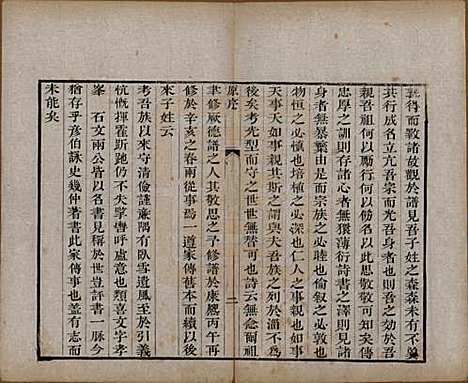 得而斁諸故觀於譜見吾子姓之森森未有不
其行成名立亢吾宗而光吾身者也則吾之効於吾
親者吾何以勵行何以傍名以思敬敬可弗也其
忠厚之訓則存諸心者無薄衍詩書之澤則見諸
身者無暴棄由是而宗族之必睦也倫叙之必
物恒之必慎也培植之必深也仁人之事親也如事
天事天如事親其斯之謂與夫吾族之列於湄不
後矣考光型而守之世世無替可也詩云無念爾祖
原序 二
聿修厥德譜之人其敬思之予修譜於康熙丙午再
修於辛亥之春兩從事焉一道家傳舊本而續以後
來子姓云
考吾族以來守清儉謹廉隅有臥雪遺風至於引義
忼慨揮霍斯跪仍不失擊呼意也類喜文字孝
峯石文兩公皆以名書見稱於世豈評書一脉今
猶存乎彥伯詠史幾仲著書此家傳事也蓋有志而
未能矣